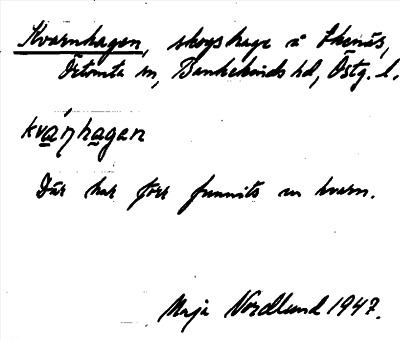 Kvarnhagen, skogshage å Ekenäs,
Örtomta sn, Bankekinds hd, Östg. l.
kvánhagen
Där har förr funnits en kvarn.
Maja Nordlund 1947.